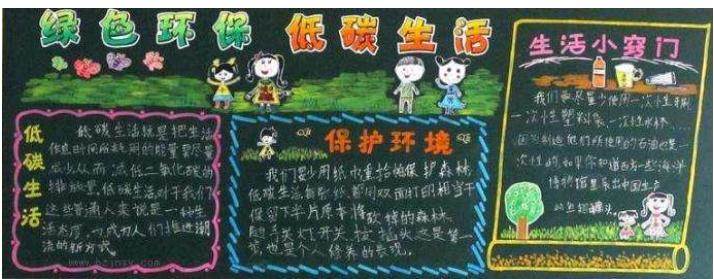 绿色环保 低碳生活
低碳生活
低碳生活就是把生活
作息时间所耗用的能量要尽量
减少从而减低二氧化碳的
排放量,低碳生活对于我们
这些普通人来说是一种生
活态度,也成为人们推进潮
流的新方式。
保护环境
我们要少用纸巾重拾帕保护森林
低碳生活每张纸都用双面打印相当于
保留下半片原本将砍掉的森林
随手关灯开关拔插头这是第一
步也是个人修养的表现,
生活小窍门
我们要尽量少使用一次性牙刷
一次性塑料袋一次性水杯...
因为制造他们所使用的石油也是一
次性的
海洋
博物馆里展出中国生产
www.